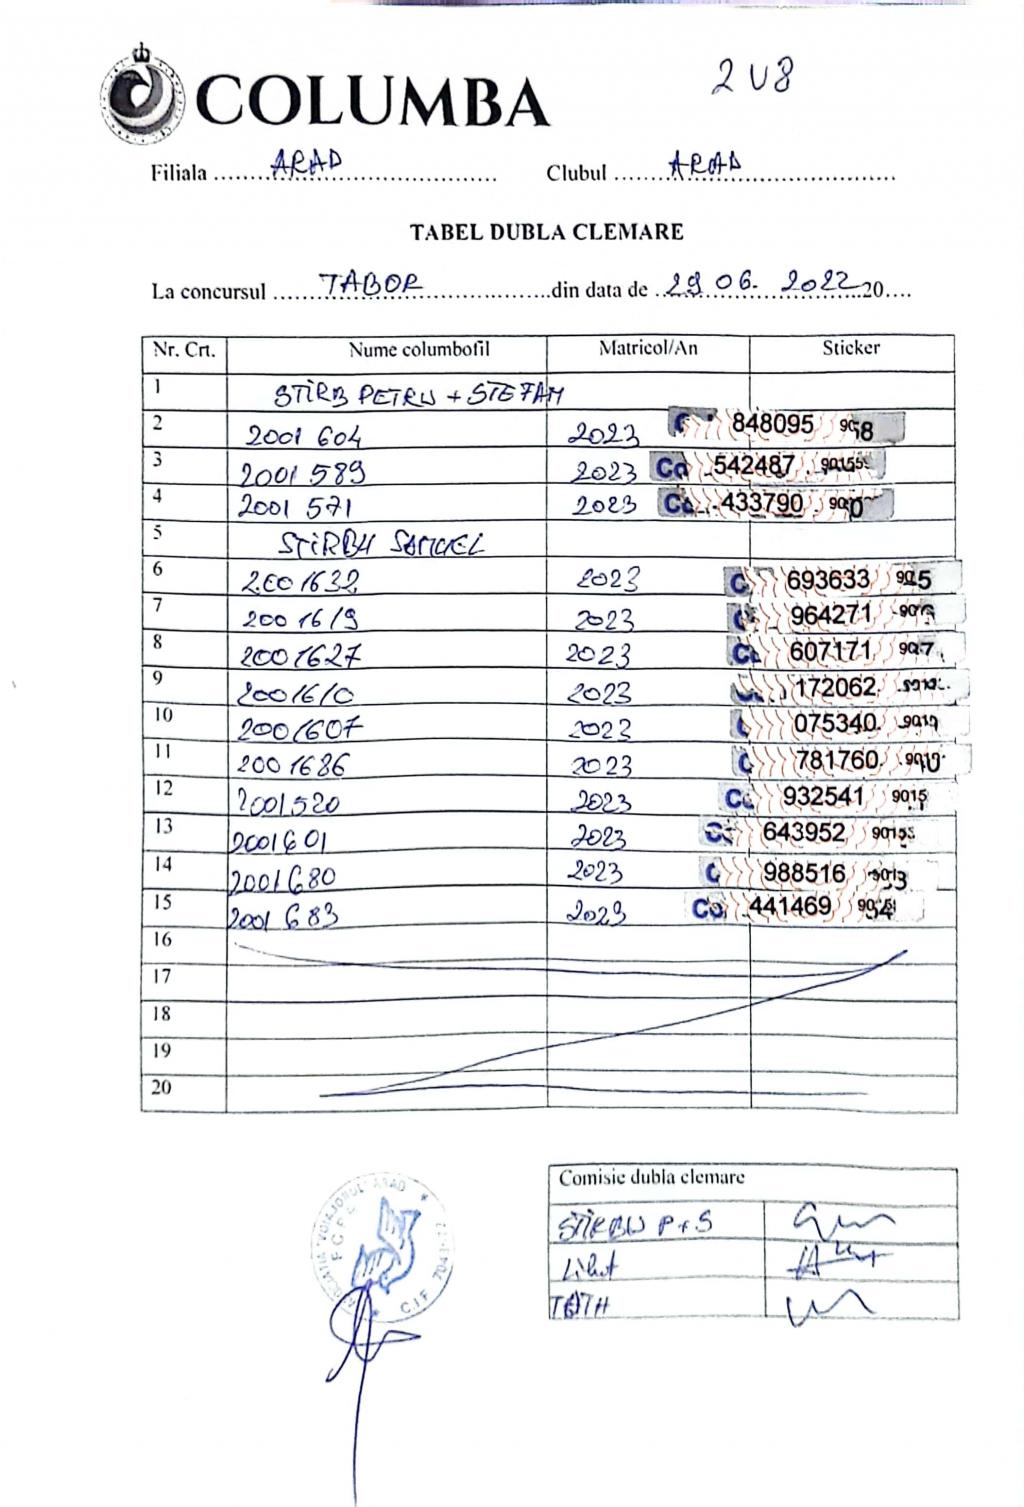 COLUMBA
2 V8
Filiala ARAD Clubul ARAD
TABEL DUBLA CLEMARE
La concursul TABOR din data de 29 06. 2022 20....
Nr. Crt. Nume columbofil Matricol/An Sticker
1 STIRB PETRU + STEFAN
2 2001 604 2023 848095
3 2001 589 2023 Co 542487
4 2001 571 2023 433790
5 STIRBU SAMUEL
6 2001632 2023 693633
7 2001619 2023 964271
8 2001627 2023 607171
9 2001610 2023 172062
10 2001607 2023 075340
11 2001686 2023 781760
12 2001520 2023 932541 9015
13 2001601 2023 643952
14 2001680 2023 988516
15 2001 683 2023 Co 441469
16
17
18
19
20
Comisie dubla clemare
STIRBU P + S
TOTH
C.I.F.